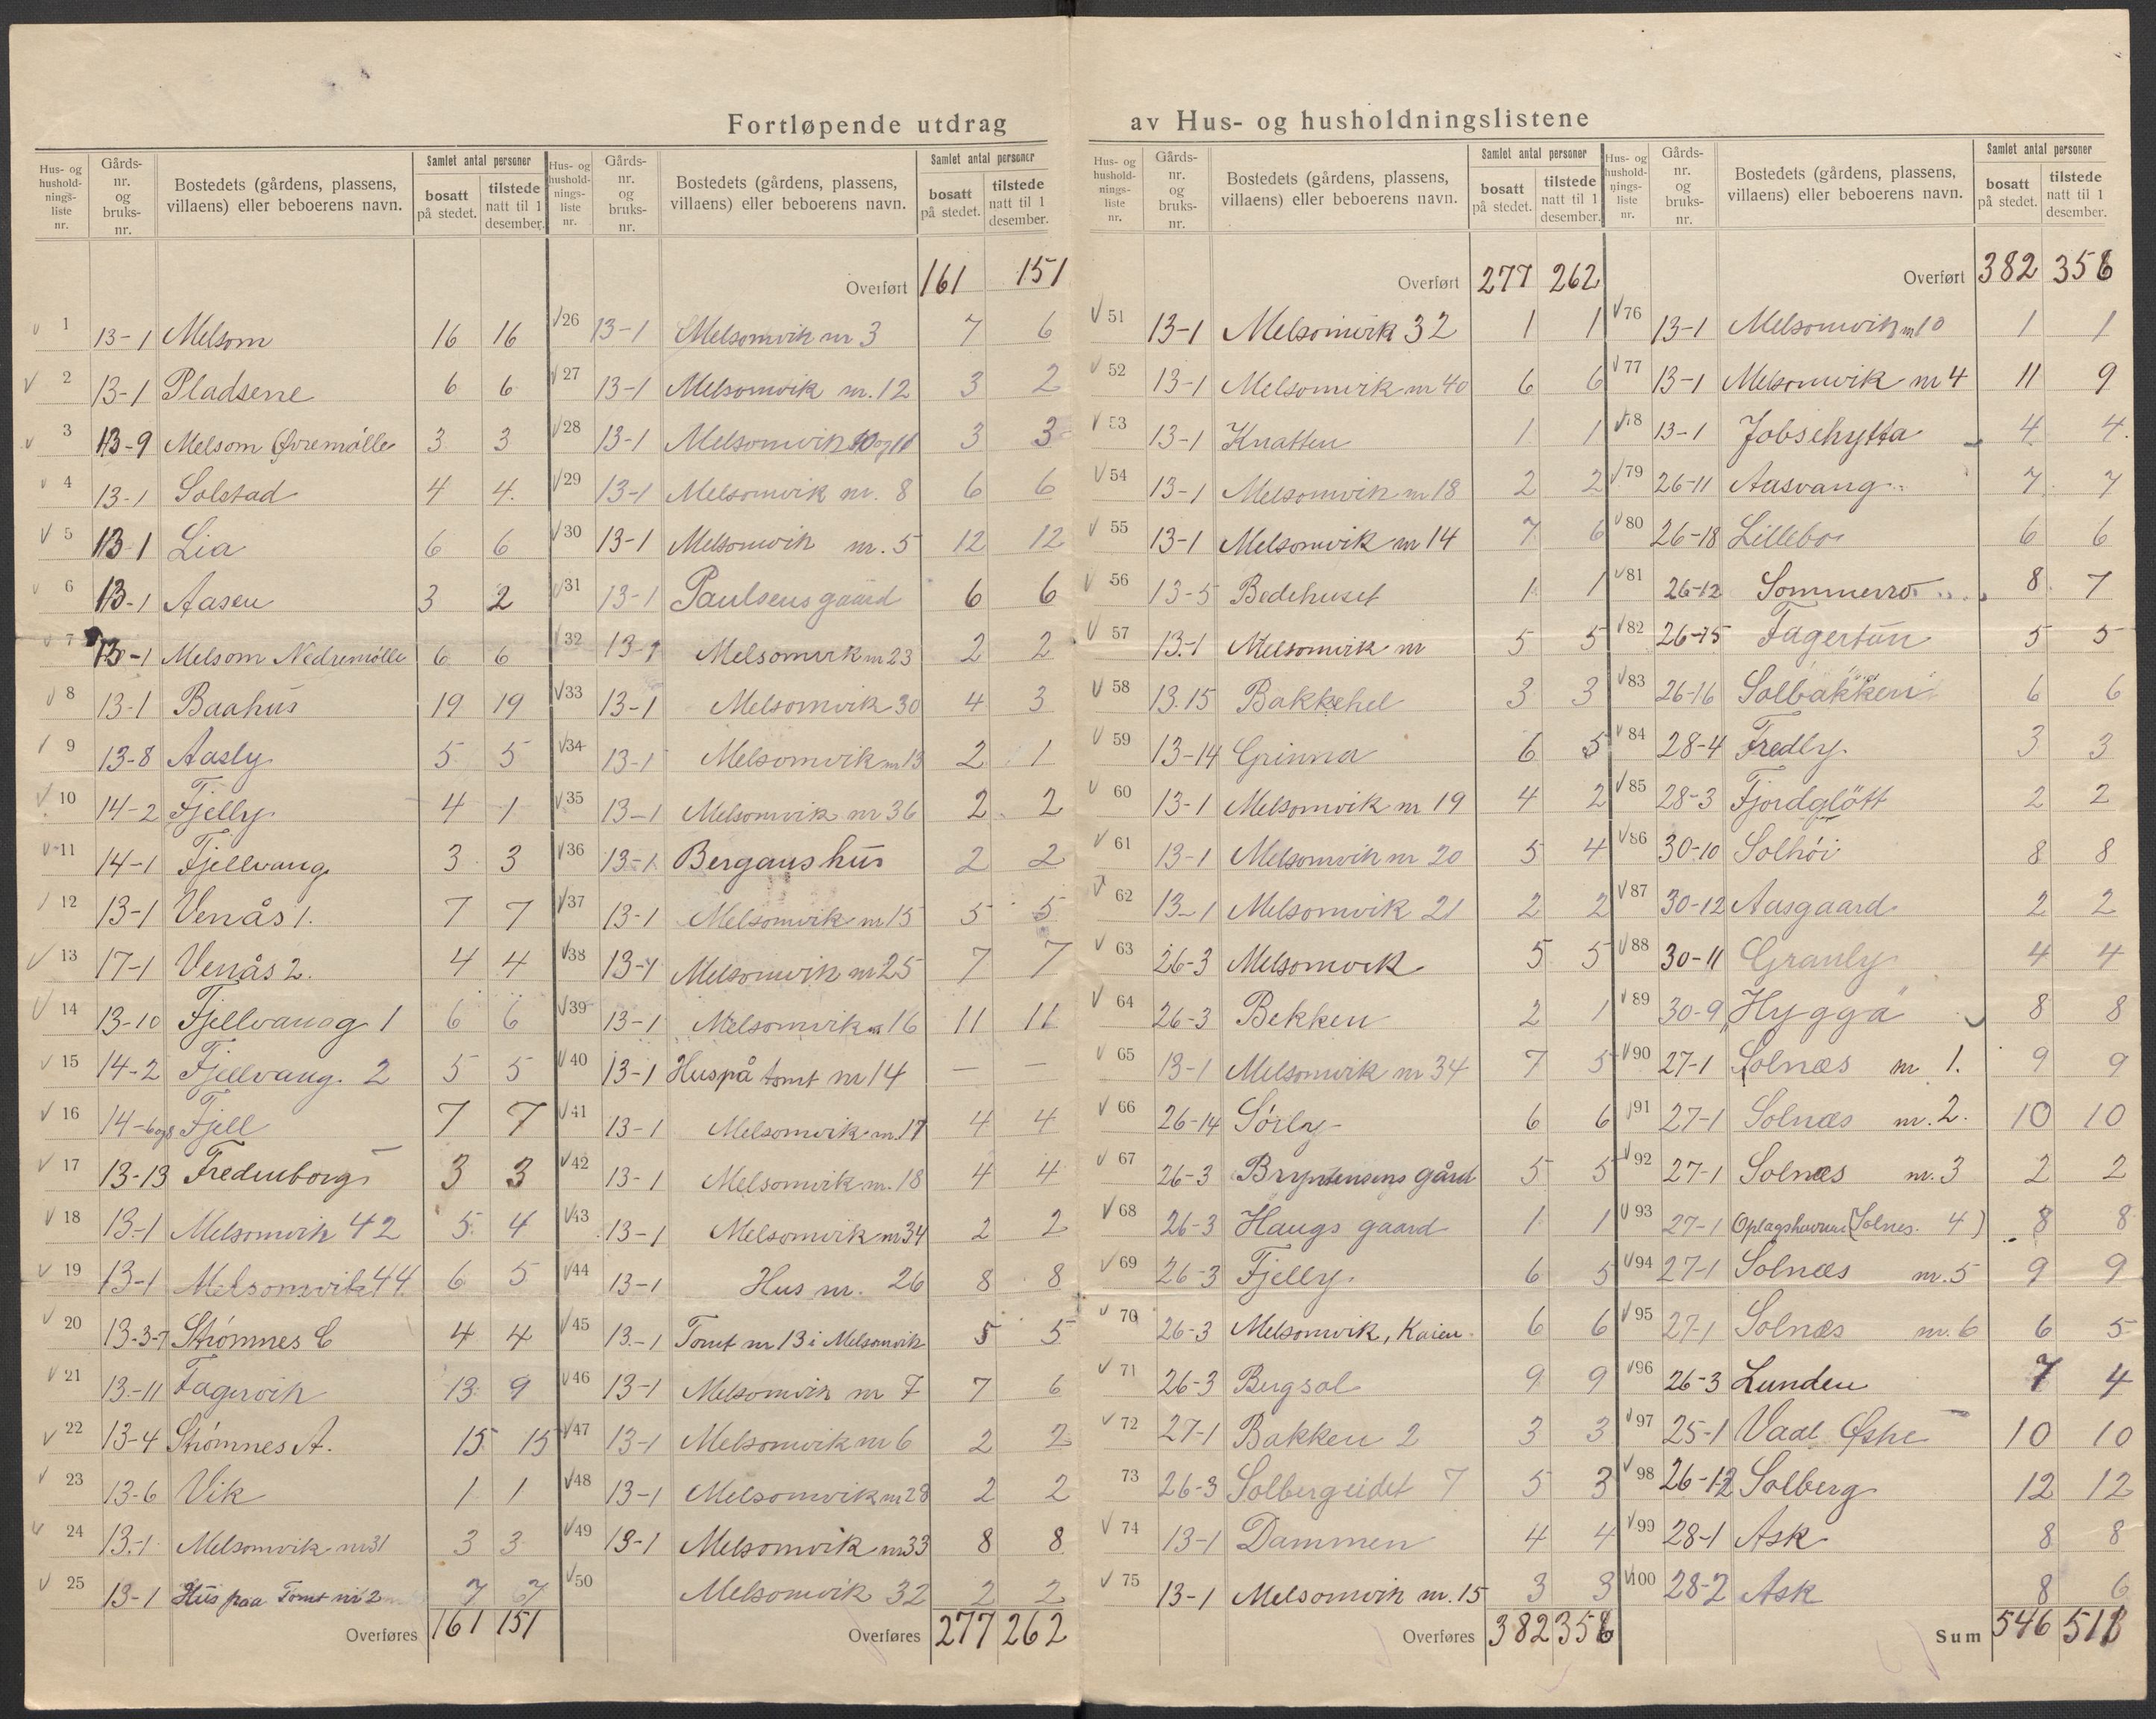 Fortløpende utdrag av Hus- og husholdningslistene
Hus- og hushold-nings-liste nr. Gårds-nr. og bruks-nr. Bostedets (gårdens, plassens, villaens) eller beboerens navn. Samlet antal personer bosatt på stedet. tilstede natt til 1 desember.
1 13-1 Melsom 16 16
2 13-1 Pladsene 6 6
3 13-9 Melsom Øvremølle 3 3
4 13-1 Solstad 4 4
5 13-1 Lia 6 6
6 13-1 Aasen 3 2
7 13-1 Melsom Nedremølle 6 6
8 13-1 Baahus 19 19
9 13-8 Aasly 5 5
10 14-2 Fjelly 4 1
11 14-1 Fjellvang 3 3
12 13-1 Venås 1. 7 7
13 17-1 Venås 2. 4 4
14 13-10 Fjellvang 1 6 6
15 14-2 Fjellvang. 2 5 5
16 14-6og8 Fjell 7 7
17 13-13 Fredensborg 3 3
18 13-1 Melsomvik 42 5 4
19 13-1 Melsomvik 44 6 5
20 13-3-7 Strömnes C 4 4
21 13-11 Fagervik 13 9
22 13-4 Strömnes A. 15 15
23 13-6 Vik 1 1
24 13-1 Melsomvik nr 31 3 3
25 13-1 Hus paa Tomt nr 2 7 7
Overføres 161 151
Hus- og hushold-nings-liste nr. Gårds-nr. og bruks-nr. Bostedets (gårdens, plassens, villaens) eller beboerens navn. Samlet antal personer bosatt på stedet. tilstede natt til 1 desember.
Overført 161 151
26 13-1 Melsomvik nr 3 7 6
27 13-1 Melsomvik nr. 12 3 2
28 13-1 Melsomvik 3 3
29 13-1 Melsomvik nr. 8 6 6
30 13-1 Melsomvik nr. 5 12 12
31 13-1 Paulsens gaard 6 6
32 13-1 Melsomvik nr 23 2 2
33 13-1 Melsomvik 30 4 3
34 13-1 Melsomvik nr 13 2 1
35 13-1 Melsomvik nr 36 2 2
36 13-1 Bergans hus 2 2
37 13-1 Melsomvik nr 15 5 5
38 13-1 Melsomvik nr 25 7 7
39 13-1 Melsomvik nr 16 11 11
40 13-1 Hus på tomt nr 14 — —
41 13-1 Melsomvik nr. 17 4 4
42 13-1 Melsomvik nr. 18 4 4
43 13-1 Melsomvik nr 34 2 2
44 13-1 Hus nr. 26 8 8
45 13-1 Tomt nr 13 i Melsomvik 5 5
46 13-1 Melsomvik nr 7 7 6
47 13-1 Melsomvik nr 6 2 2
48 13-1 Melsomvik nr 28 2 2
49 13-1 Melsomvik nr 33 8 8
50 Melsomvik 32 2 2
Overføres 277 262
Hus- og hushold-nings-liste nr. Gårds-nr. og bruks-nr. Bostedets (gårdens, plassens, villaens) eller beboerens navn. Samlet antal personer bosatt på stedet. tilstede natt til 1 desember.
Overført 277 262
51 13-1 Melsomvik 32 1 1
52 13-1 Melsomvik nr 40 6 6
53 13-1 Knatten 1 1
54 13-1 Melsomvik nr 18 2 2
55 13-1 Melsomvik nr 14 7 6
56 13-5 Bedehuset 1 1
57 13-1 Melsomvik nr 5 5
58 13.15 Bakkehel 3 3
59 13-14 Grinna 6 5
60 13-1 Melsomvik nr 19 4 2
61 13-1 Melsomvik nr 20 5 4
62 13-1 Melsomvik 21 2 2
63 26-3 Melsomvik 5 5
64 26-3 Bekken 2 1
65 13-1 Melsomvik nr 34 7 5
66 26-14 Sörly 6 6
67 26-3 Bryntensens gård 5 5
68 26-3 Haugs gaard 1 1
69 26-3 Fjelly. 6 5
70 26-3 Melsomvik, Kaien. 6 6
71 26-3 Bergsol 9 9
72 27-1 Bakken 2 3 3
73 26-3 Solbergeidet 7 5 3
74 13-1 Dammen 4 4
75 13-1 Melsomvik nr. 15 3 3
Overføres 382 358
Hus- og hushold-nings-liste nr. Gårds-nr. og bruks-nr. Bostedets (gårdens, plassens, villaens) eller beboerens navn. Samlet antal personer bosatt på stedet. tilstede natt til 1 desember.
Overført 382 358
76 13-1 Melsomvik nr 10 1 1
77 13-1 Melsomvik nr 4 11 9
78 13-1 Jobsehytta 4 4
79 26-11 Aasvang 7 7
80 26-18 Lillebo 6 6
81 26-12 Sommerro 8 7
82 26-15 Fagertun 5 5
83 26-16 Solbakken 6 6
84 28-4 Fredly. 3 3
85 28-3 Fjordglött 2 2
86 30-10 Solhöi 8 8
87 30-12 Aasgaard 2 2
88 30-11 Granly 4 4
89 30-9 "Hygga" 8 8
90 27-1 Solnæs nr 1. 9 9
91 27-1 Solnæs nr. 2. 10 10
92 27-1 Solnæs nr. 3 2 2
93 27-1 Oplagshavnen (Solnes. 4) 8 8
94 27-1 Solnæs nr. 5 9 9
95 27-1 Solnæs nr. 6 6 5
96 26-3 Lunden 7 4
97 25-1 Vaal Østre 10 10
98 26-12 Solberg 12 12
99 28-1 Ask 8 8
100 28-2 Ask 8 6
Sum 546 518